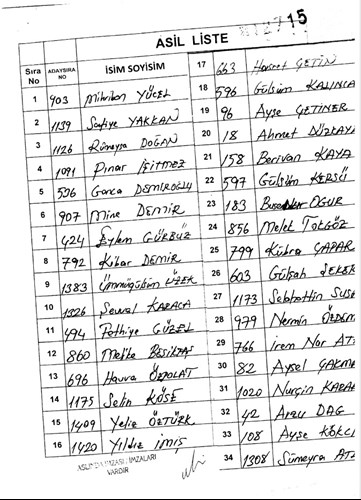 15
ASİL LİSTE
Sıra No
ADAYSIRA NO
İSİM SOYİSİM
1 903 Mihriban YÜCEL
2 1139 Safiye YAKKAN
3 1126 Rümeysa DOĞAN
4 1091 Pınar İŞİTMEZ
5 536 Gonca DEMİROĞLU
6 907 Mine DEMİR
7 424 Eylem GÜRBÜZ
8 792 Kibar DEMİR
9 1383 Ümmügülsüm
10 1326 Sevval KARACA
11 494 Fethiye GÜZEL
12 860 Melike BEŞİKTAŞ
13 696 Havva ÖZPOLAT
14 1175 Selin KÖSE
15 1409 Yeliz ÖZTÜRK
16 1420 Yıldız İMİŞ
17 663 Hasret ÇETİN
18 596 Gülsüm KALINCA
19 96 Ayşe ÇETİNER
20 18 Ahmet DÜZKAYA
21 158 Berivan KAYA
22 597 Gülsüm
23 183 OĞUR
24 856 Melek TOKGÖZ
25 799 Kübra ÇAPAR
26 603 Gülşah
27 1173 Selahattin
28 979 Nermin
29 766 İrem Nur
30 82 Aysel ÇAKMA
31 1020 Nurçin KARA
32 42 Arzu DAĞ
33 108 Ayşe KÖKCÜ
34 1308 Sümeyra
ASLINDA İMZALARI
VARDIR